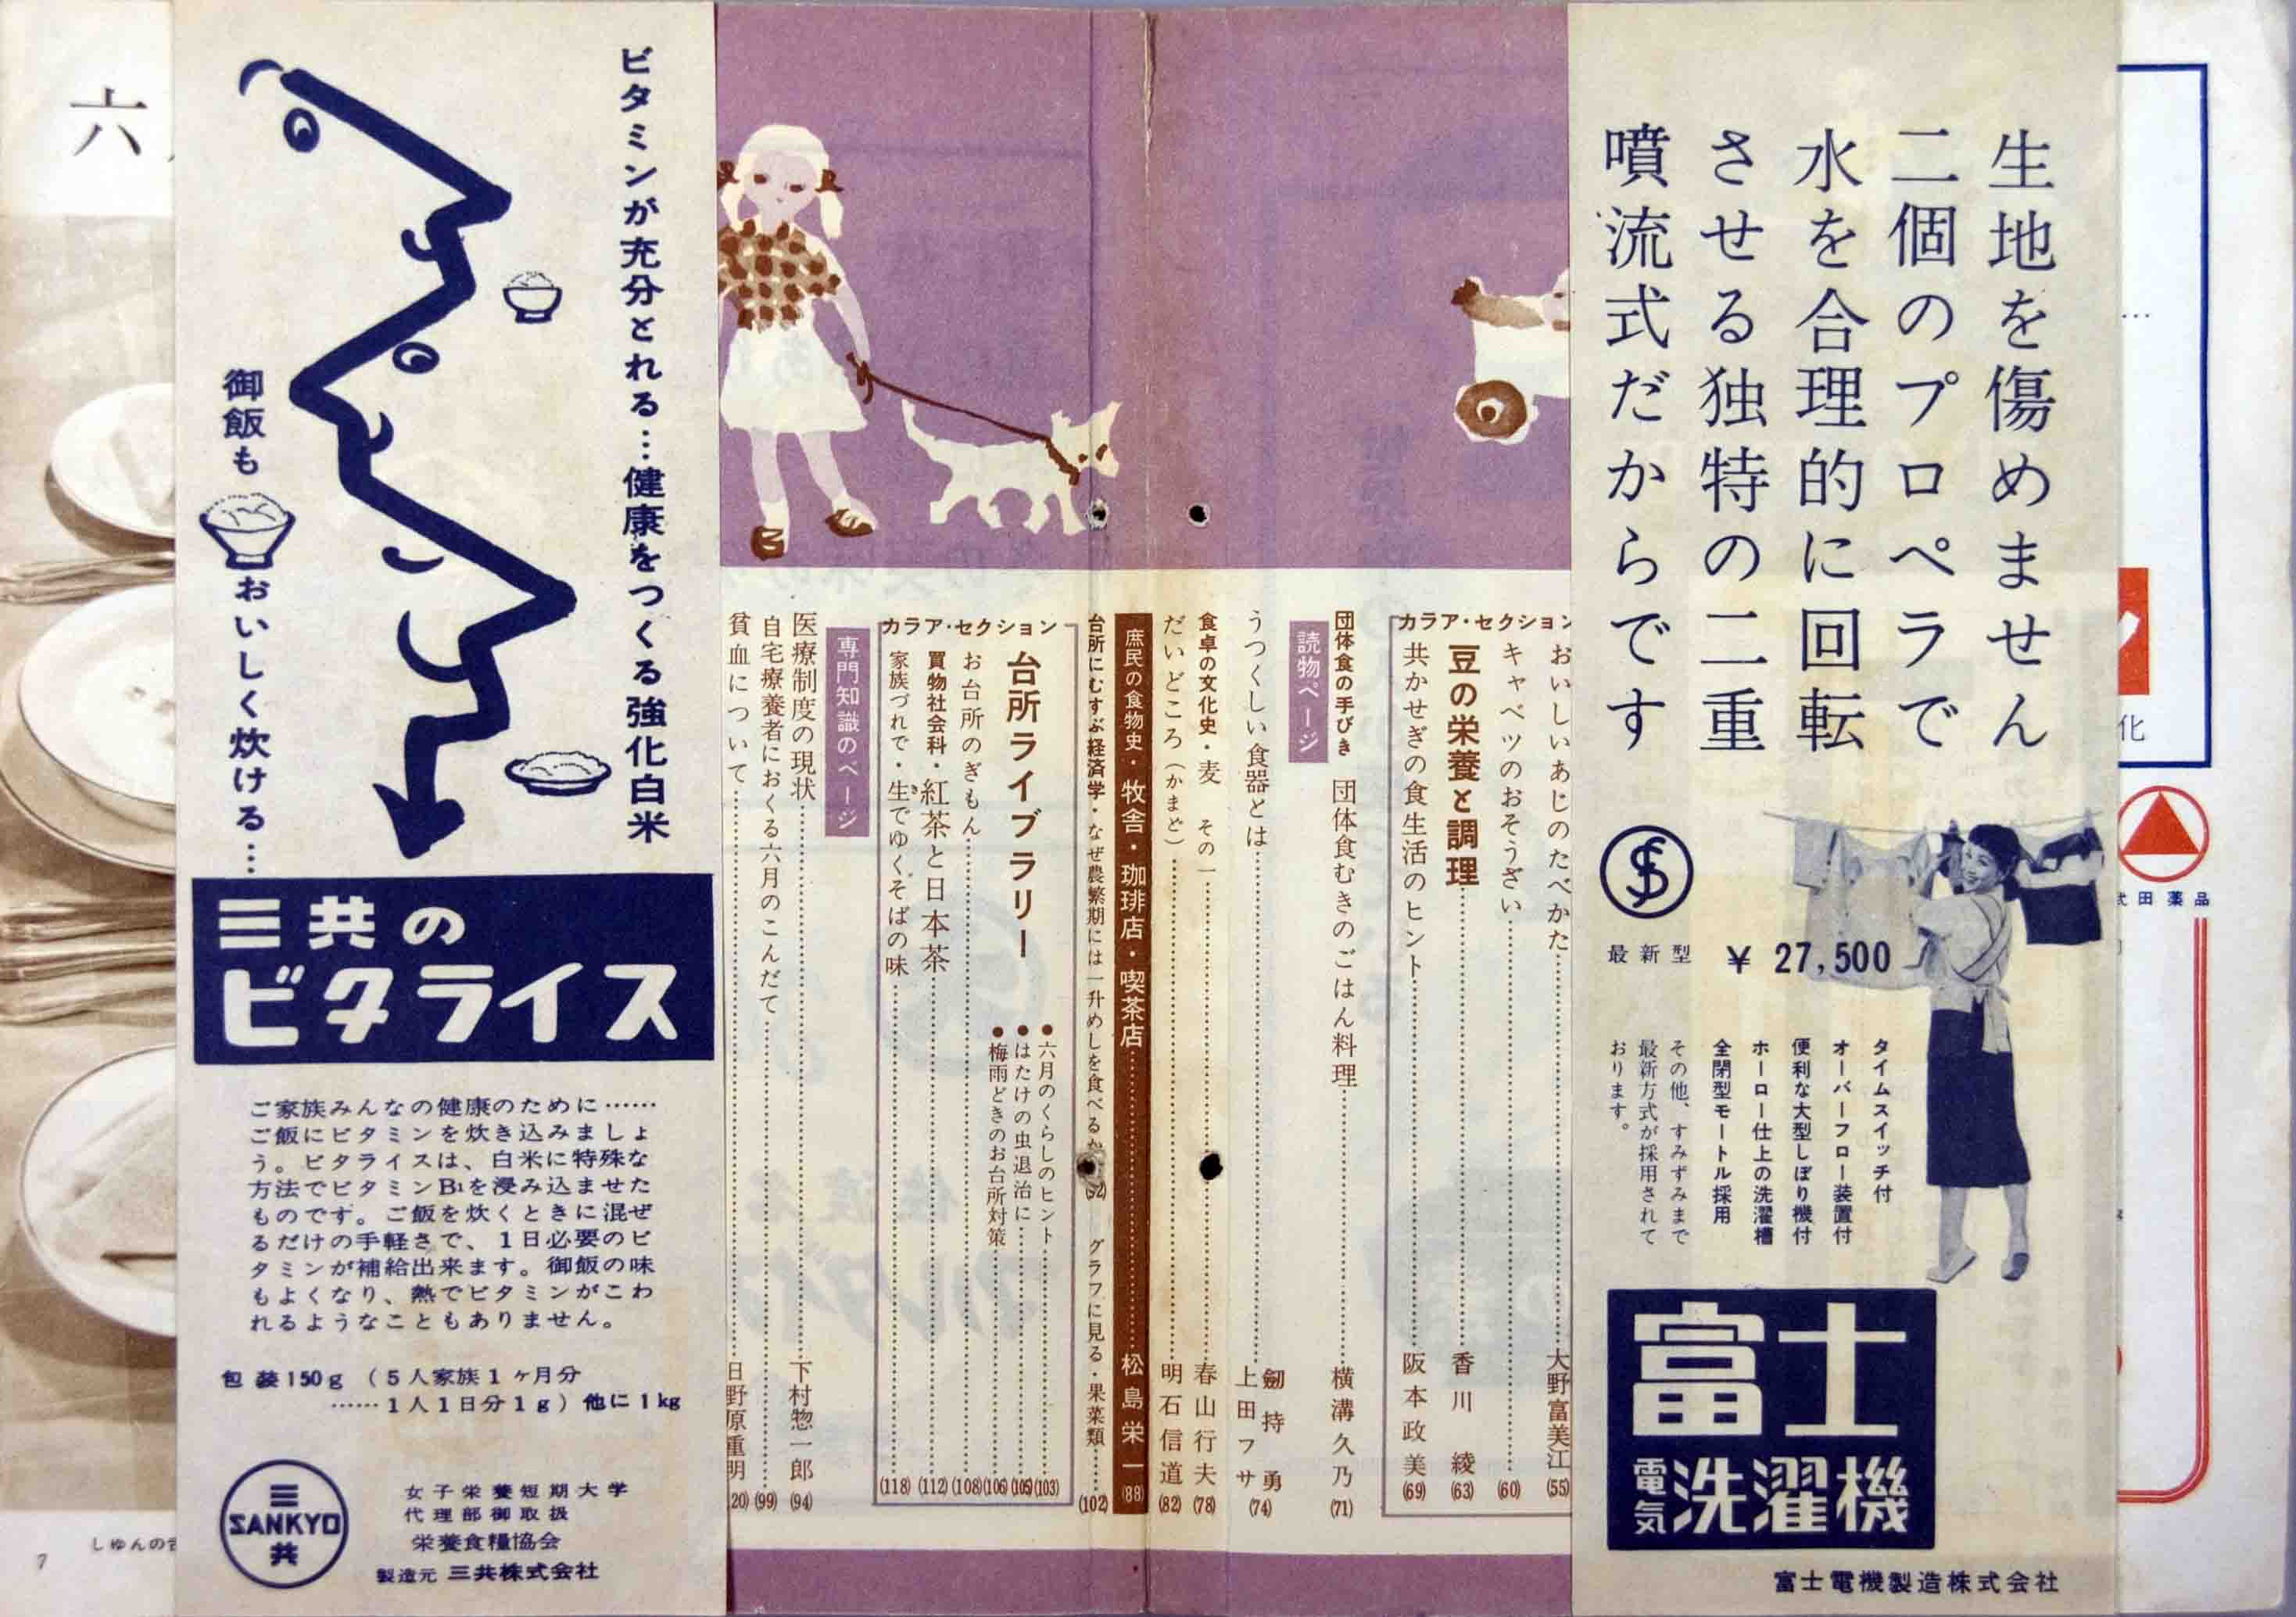 生地を傷めません
二個のプロペラで
水を合理的に回転
させる独特の二重
噴流式だからです
最新型 ¥ 27,500
タイムスイッチ付
オーバーフロー装置付
便利な大型しぼり機付
ホーロー仕上の洗濯槽
全閉型モートル採用
その他、すみずみまで
最新方式が採用されて
おります。
富士
電気洗濯機
富士電機製造株式会社
化
武田薬品
カラア・セクション
おいしいあじのたべかた 大野富美江 (55)
キャベツのおそうざい (60)
豆の栄養と調理 香川綾 (63)
共かせぎの食生活のヒント 阪本政美 (69)
団体食の手びき 団体食むきのごはん料理 横溝久乃 (71)
読物ページ
うつくしい食器とは 釼持勇 上田フサ (74)
食卓の文化史・麦 その一 春山行夫 (78)
だいどころ(かまど) 明石信道 (82)
庶民の食物史・牧舎・珈琲店・喫茶店 松島栄一 (88)
台所にむすぶ経済学・なぜ農繁期には一升めしを食べるか (92) グラフに見る・果菜類 (102)
カラア・セクション
台所ライブラリー
●六月のくらしのヒント (103)
●はたけの虫退治に (105)
●梅雨どきのお台所対策 (106)
お台所のぎもん (108)
買物社会科・紅茶と日本茶 (112)
家族づれで・生でゆくそばの味 (118)
き
専門知識のページ
医療制度の現状 下村惣一郎 (94)
自宅療養者におくる六月のこんだて (99)
貧血について 日野原重明 20)
ビタミンが充分とれる…健康をつくる強化白米
御飯も
おいしく炊ける…
三共の
ビタライス
ご家族みんなの健康のために……
ご飯にビタミンを炊き込みましょ
う。ビタライスは、白米に特殊な
方法でビタミンB₁を浸み込ませた
ものです。ご飯を炊くときに混ぜ
るだけの手軽さで、1日必要のビ
タミンが補給出来ます。御飯の味
もよくなり、熱でビタミンがこわ
れるようなこともありません。
包装150g(5人家族1ヶ月分
……1人1日分1g)他に1kg
三
SANKYO
共
女子栄養短期大学
代理部御取扱
栄養食糧協会
製造元 三共株式会社
六
しゅんの
7